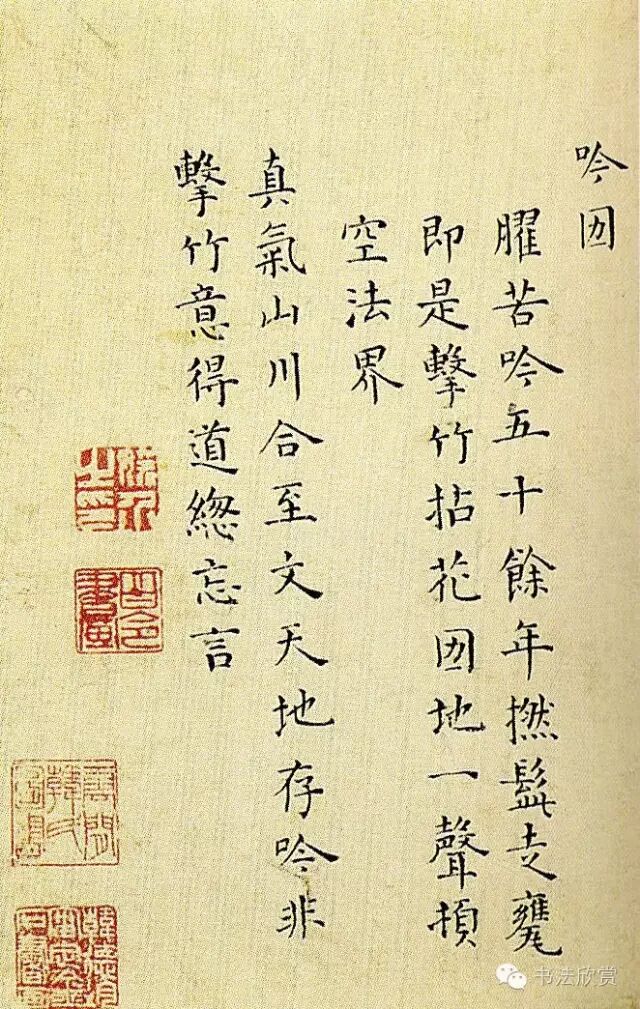 吟㘞
臞苦吟五十餘年撚髭走甕
即是擊竹拈花㘞地一聲頓
空法界
真氣山川合至文天地存吟非
擊竹意得道緫忘言
书法欣赏